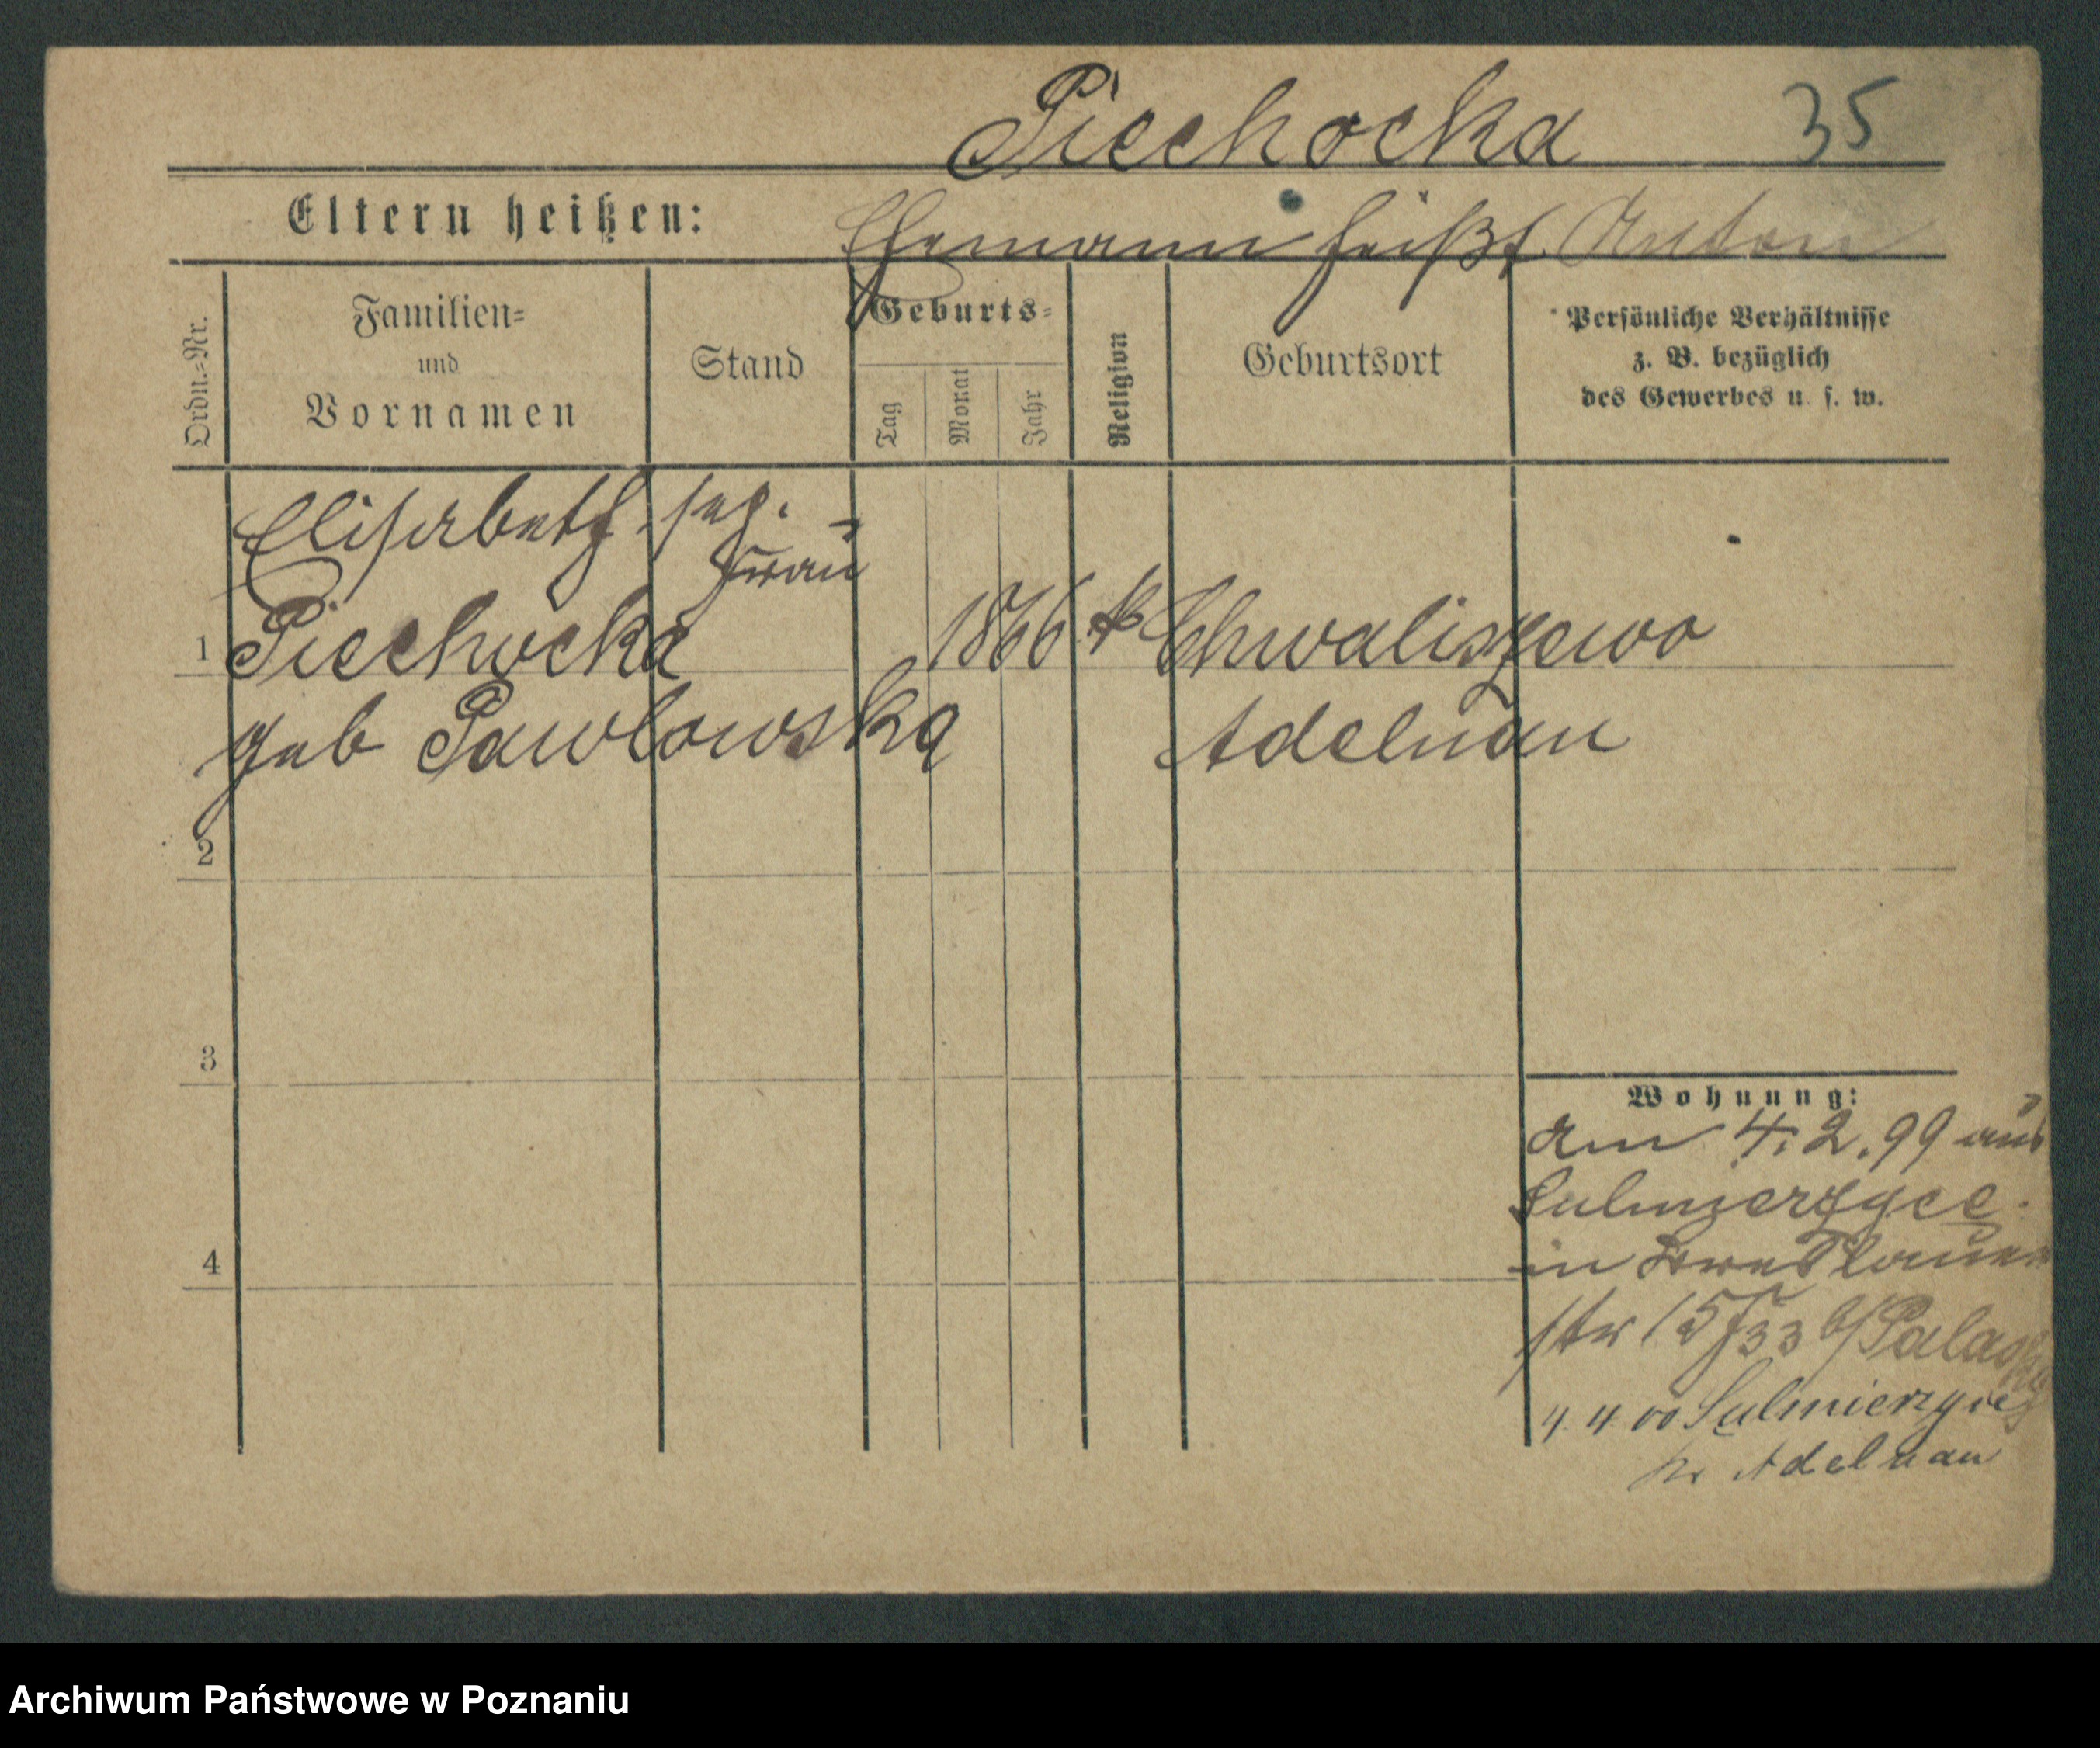 Piechocka 35
Eltern heißen: Ehemann heißt Anton
Ordn.-Nr.
Familien=
und
Vornamen
Stand
Geburts=
Tag
Monat
Jahr
Religion
Geburtsort
Persönliche Verhältnisse
z. B. bezüglich
des Gewerbes u. s. w.
Elisabeth sep.
Frau
1 Piechocka 1866 k Chwaliszewo
geb Pawlowska Adelnau
2
3
4
Wohnung:
am 4. 2. 99 aus
Sulmierzyce
in Breslauer
str 15/33 b/
4. 4. 00 Sulmierzyce
Kr Adelnau
Archiwum Państwowe w Poznaniu